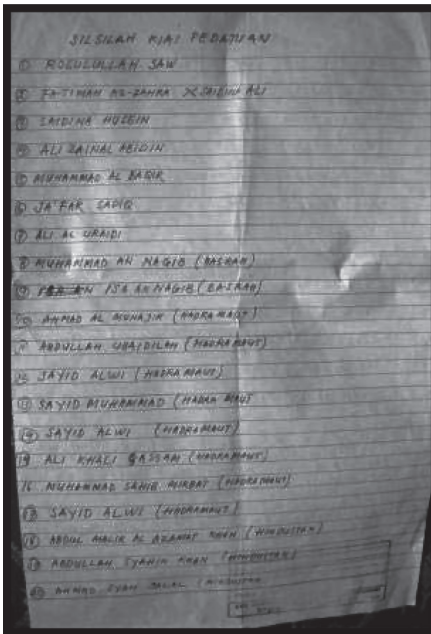 SILSILAH KIAI PEDATUAN
① ROSULULLAH SAW
② FATIMAH AZ-ZAHRA X SAIDINA ALI
③ SAIDINA HUSEIN
④ ALI ZAINAL ABIDIN
⑤ MUHAMMAD AL BAQIR
⑥ JA'FAR SADIQ
⑦ ALI AL URAIDI
8 MUHAMMAD AN NAGIB (BASRAH)
9 ISA AN NAGIB (BASRAH)
10 AHMAD AL MUHAJIR (HADRAMAUT)
11 ABDULLAH UBAIDILAH (HADRAMAUT)
12 SAYID ALWI (HADRAMAUT)
⑬ SAYID MUHAMMAD (HADRAMAUT
⑭ SAYID ALWI (HADRAMAUT)
15 ALI KHALI QASSAM (HADRAMAUT)
16 MUHAMMAD SAHIB MIRBAT (HADRAMAUT)
⑰ SAYID ALWI (HADRAMAUT)
⑱ ABDUL MALIK AL AZAMAT KHAN (HINDUSTAN)
⑲ ABDULLAH SYAHIN KHAN (HINDUSTAN)
⑳ AHMAD SYAH JALAL (HINDUSTAN